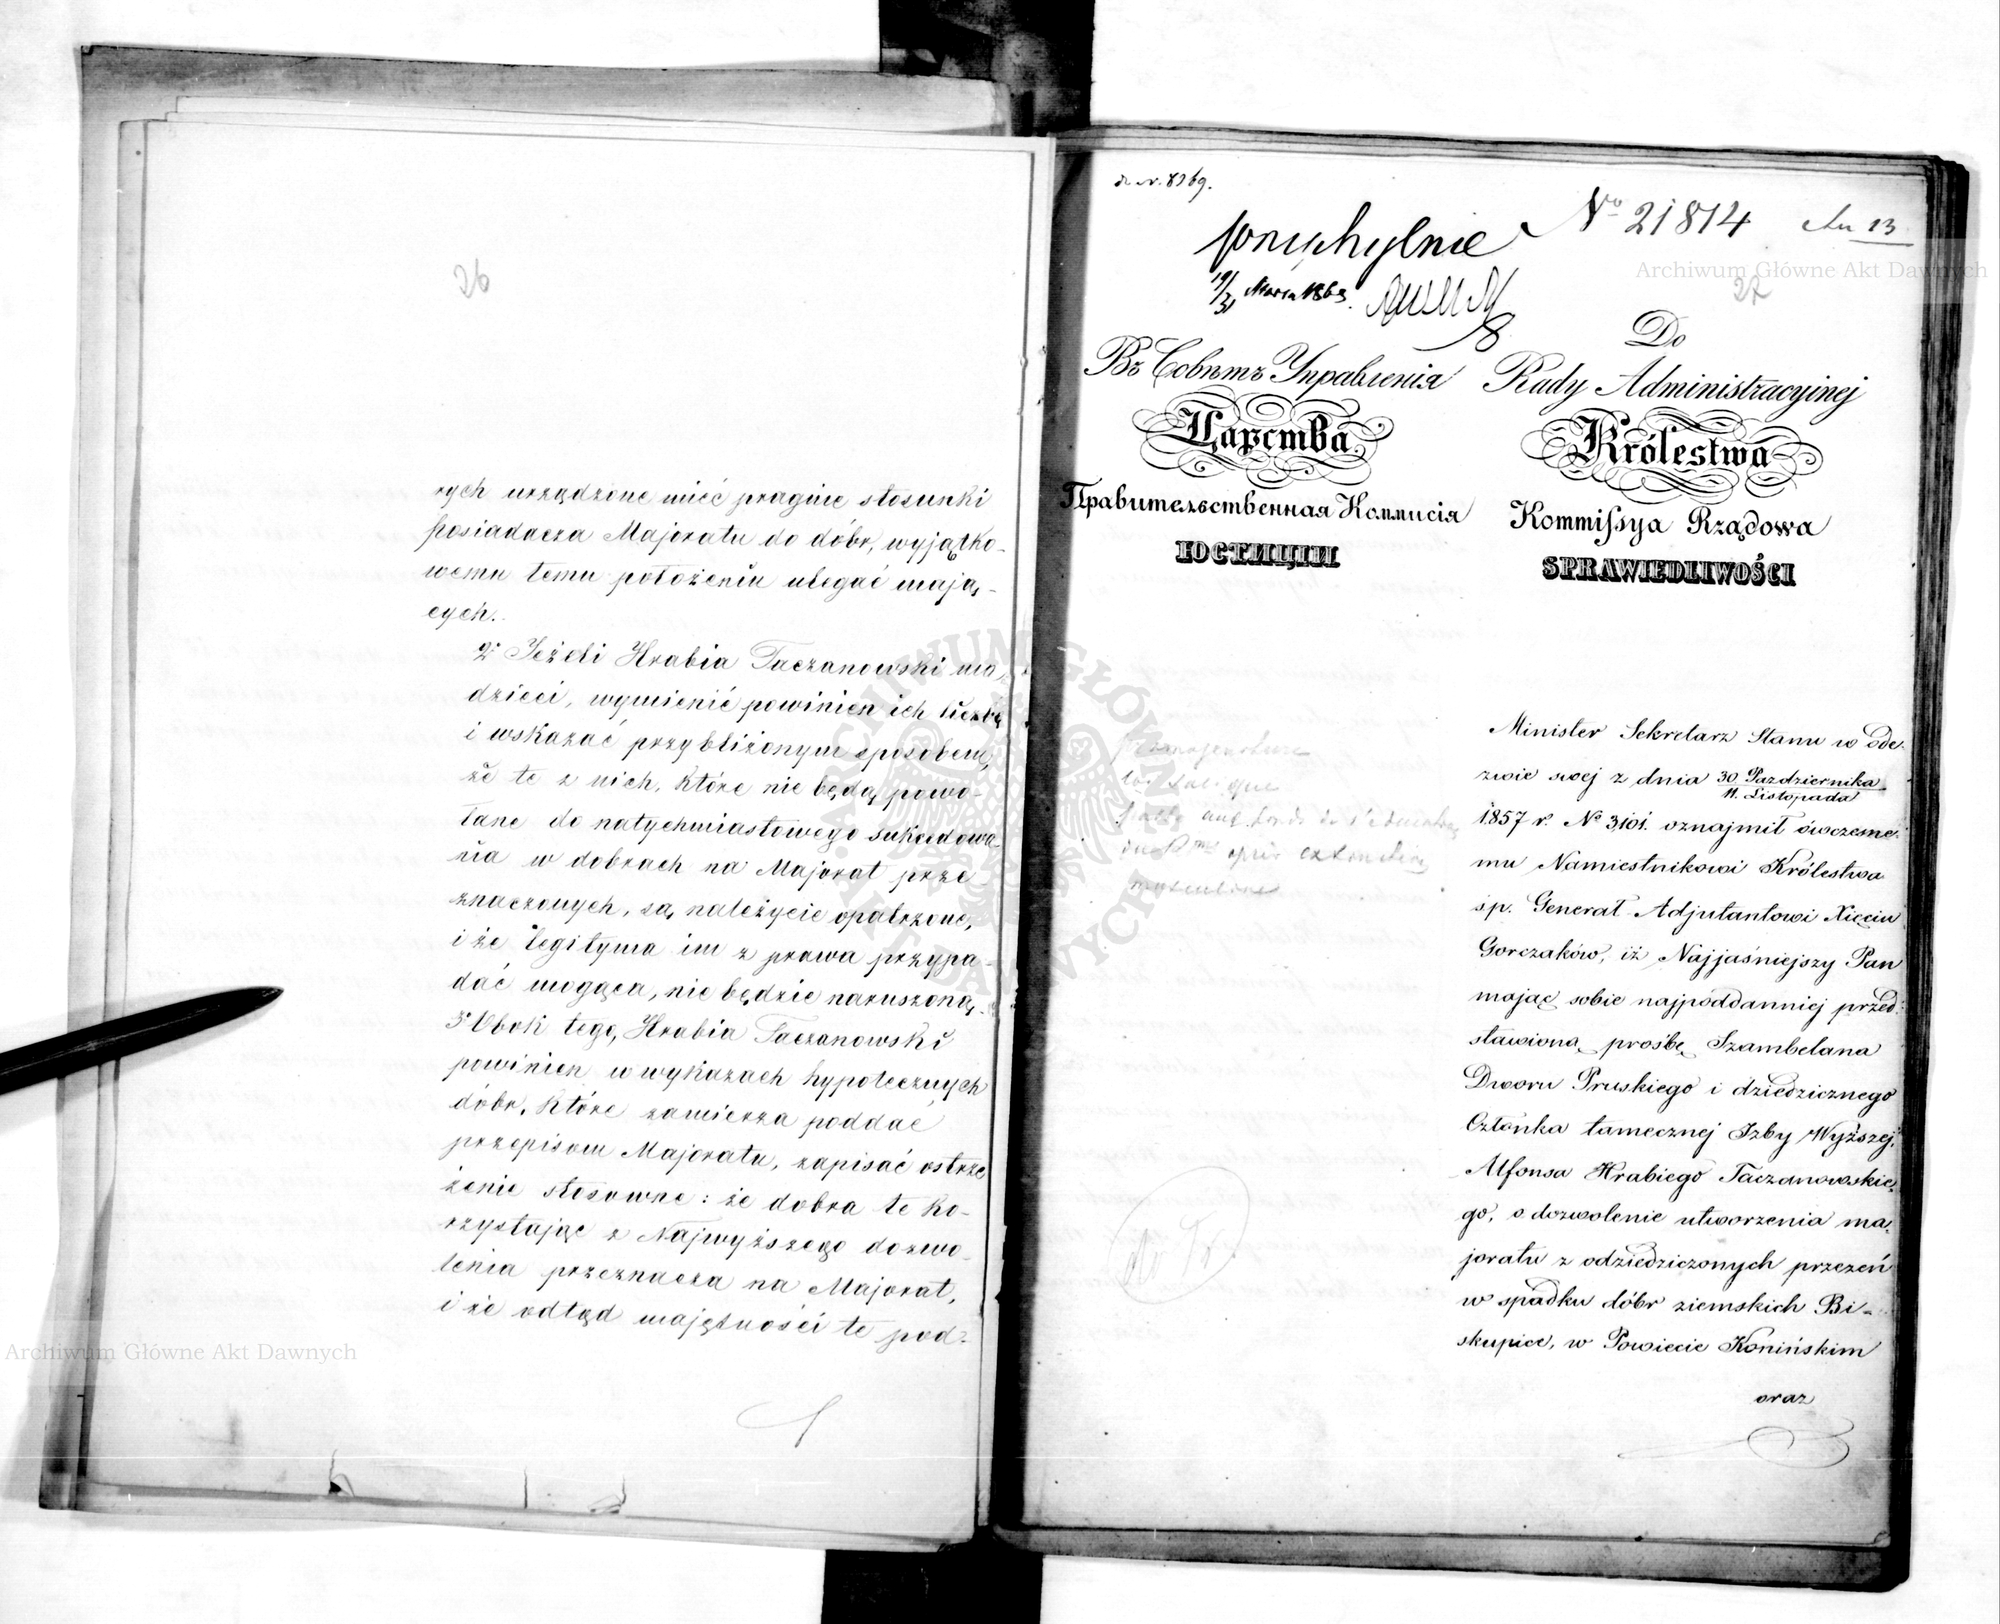 26
rych urządzone mieć pragnie stosunki
posiadacza Majoratu do dóbr, wyjątko-
wemu temu położeniu ulegać mają-
cych.
2° Jeżeli Hrabia Taczanowski ma
dzieci, wymienić powinien ich liczbę
i wskazać przybliżonym sposobem,
że te z nich, które nie będą powo-
łane do natychmiastowego sukcedowa-
nia w dobrach na Majorat prze-
znaczonych, są należycie opatrzone,
i że legityma im z prawa przypa-
dać mogąca, nie będzie naruszoną.
3° Obok tego, Hrabia Taczanowski
powinien w wykazach hypotecznych
dóbr, które zamierza poddać
przepisom Majoratu, zapisać ostrze
żenie stosowne: że dobra te ko-
rzystając z Najwyższego dozwo-
lenia przeznacza na Majorat,
i że odtąd majętności te pod-
Archiwum Główne Akt Dawnych
8269.
No 21814
13
przychylnie
19/31 Marca 1863.
Archiwum Główne Akt Dawnych
27
Въ Совѣтъ Управленія
Царства
Правительственная Коммисія
ЮСТИЦІИ
Do
Rady Administracyjnej
Królestwa
Kommissya Rządowa
SPRAWIEDLIWOŚCI
primogeniture
loi salique
Minister Sekretarz Stanu w ode-
zwie swej z dnia 30 Pazdziernika / 11. Listopada
1857 r. No 3,101. oznajmił ówczesne-
mu Namiestnikowi Królestwa
śp. Generał Adjutantowi Xięciu
Gorczaków, iż Najjaśniejszy Pan
mając sobie najpoddanniej przed-
stawioną prośbę Szambelana
Dworu Pruskiego i dziedzicznego
Członka tamecznej Izby Wyższej,
Alfonsa Hrabiego Taczanowskie-
go, o dozwolenie utworzenia ma-
joratu z odziedziczonych przezeń
w spadku dóbr ziemskich Bi-
skupice, w Powiecie Konińskim
oraz
ARCHIWUM GŁÓWNE AKT DAWNYCH